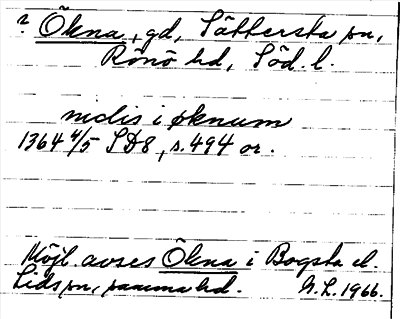 ? Ökna, gd, Sättersta sn,
Rönö hd, Söd. l.
nidis i øknum
1364 4/5 SD8, s. 494 or.
Möjl. avses Ökna i Bogsta el
Lids sn, samma hd. G.L. 1966.